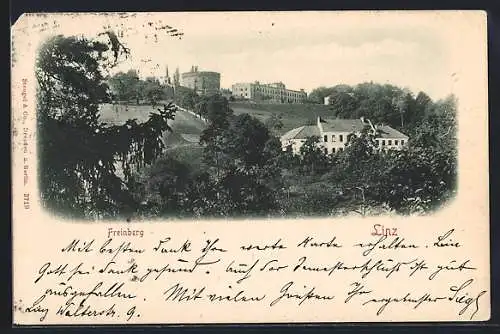 Stengel & Co., Dresden u. Berlin. 2719
Freinberg
Linz
Mit besten Dank Ihre werte Karte erhalten. Bin
Gott sei Dank gesund. Auch der Semesterschluß ist gut
ausgefallen. Mit vielen Grüßen Ihr ergebenster
Linz Walterstr. 9.